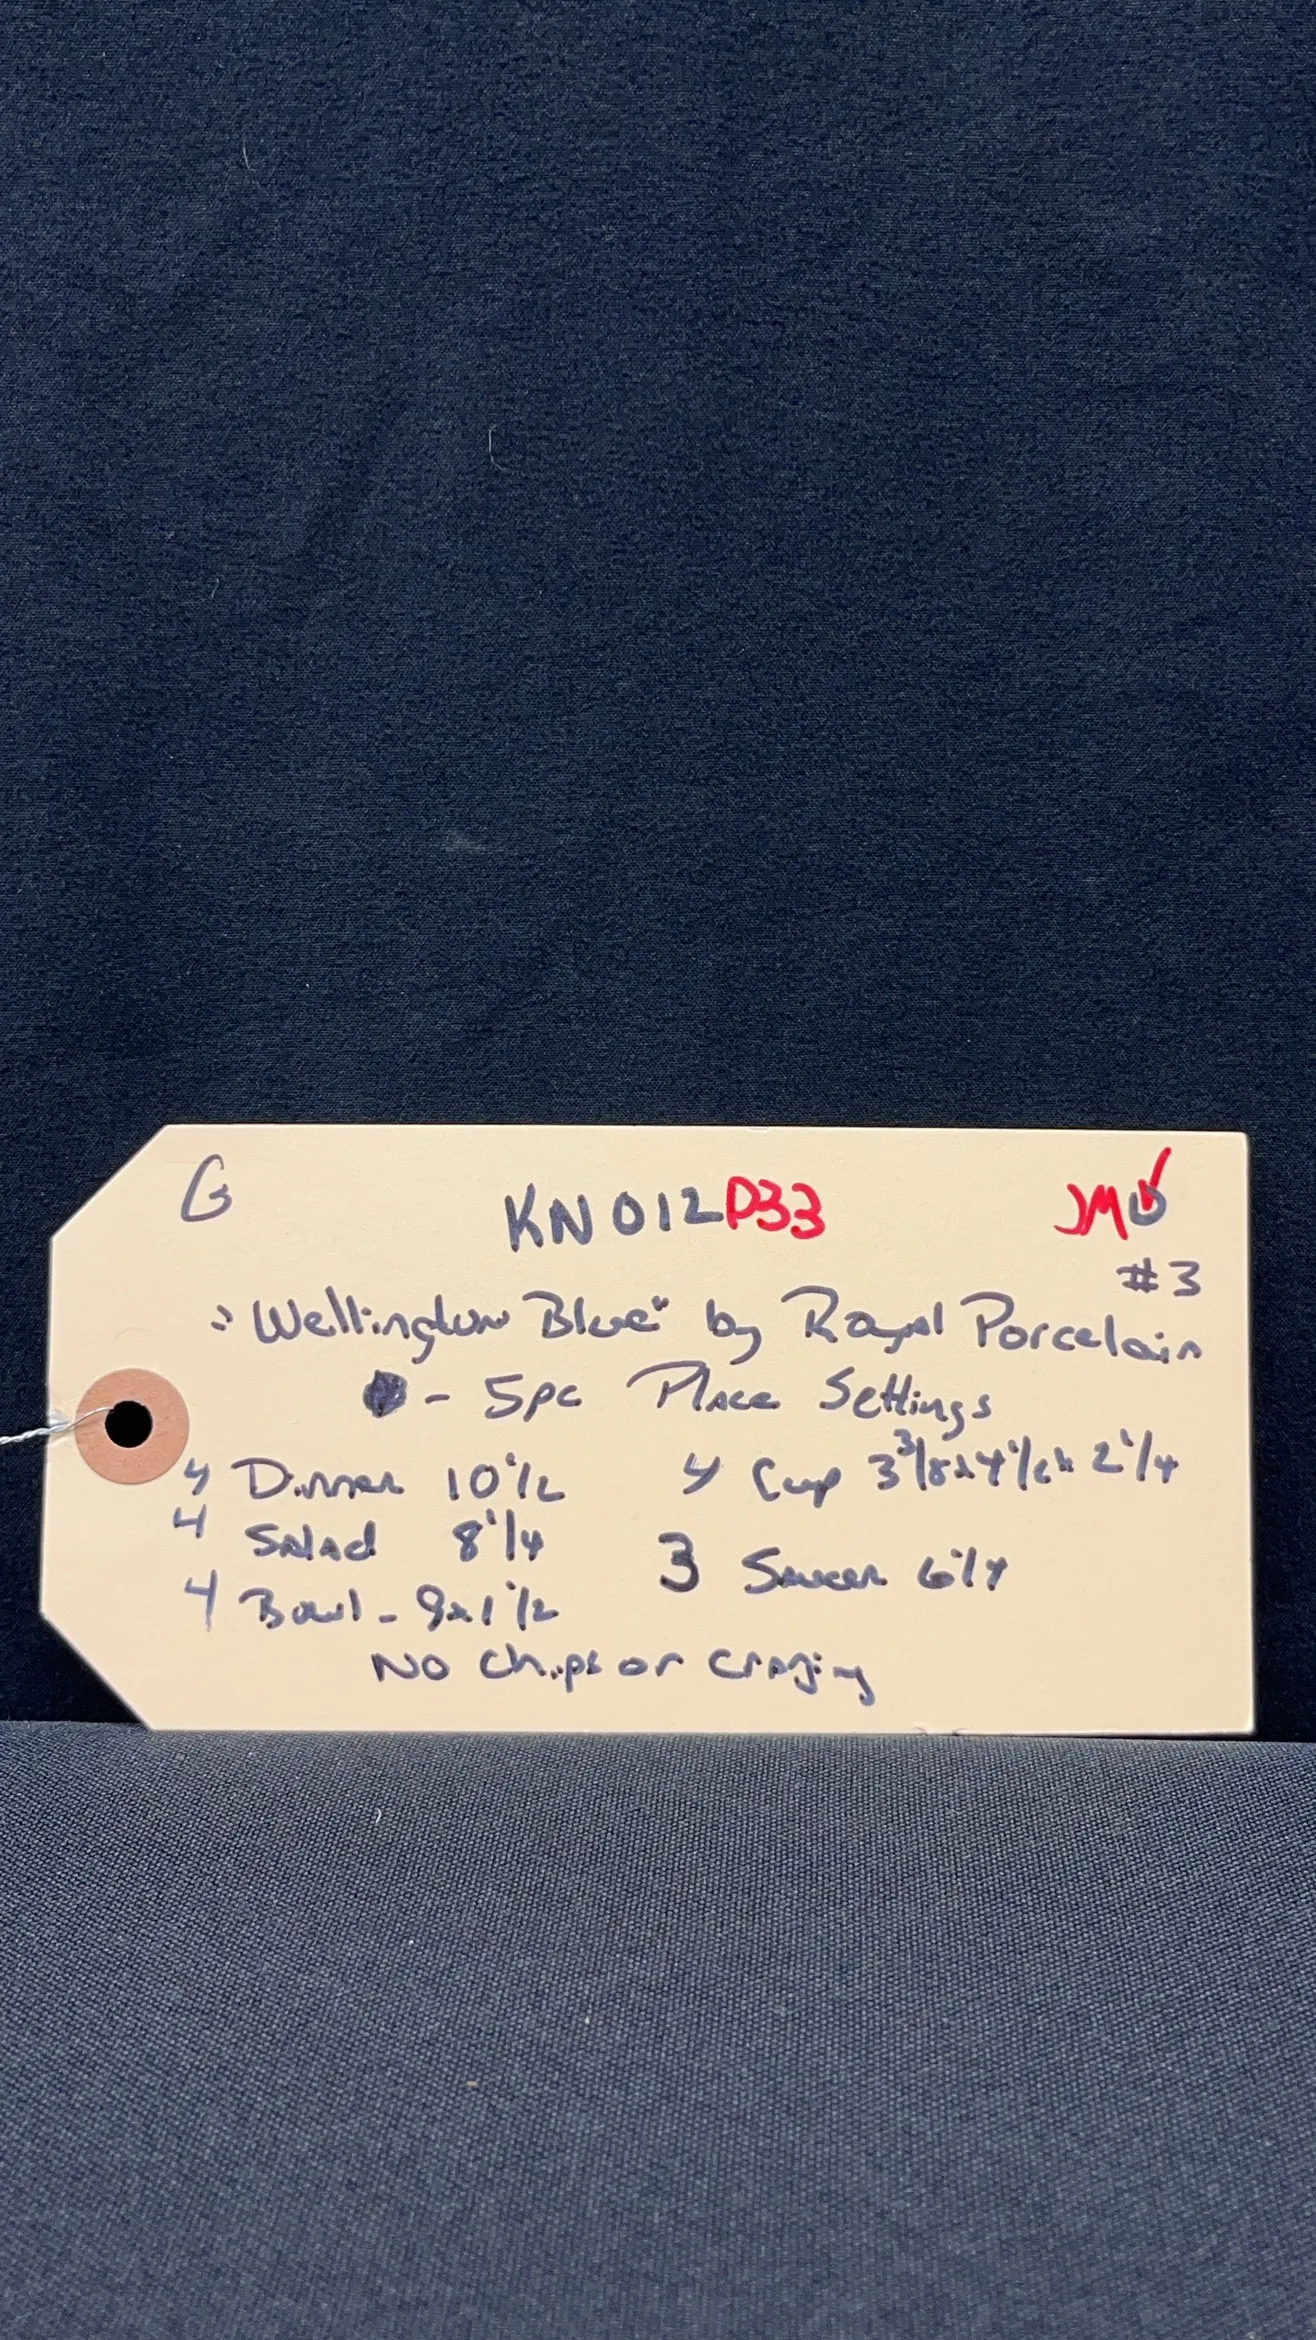 G KN012D33 JMD
#3
"Wellington Blue" by Royal Porcelain
- 5pc Place Settings
4 Dinner 10 1/2 4 Cup 3 3/8 x 4 1/2 x 2 1/4
4 Salad 8 1/4 3 Saucer 6 1/4
4 Bowl - 9 x 1 1/2
No chips or crazing